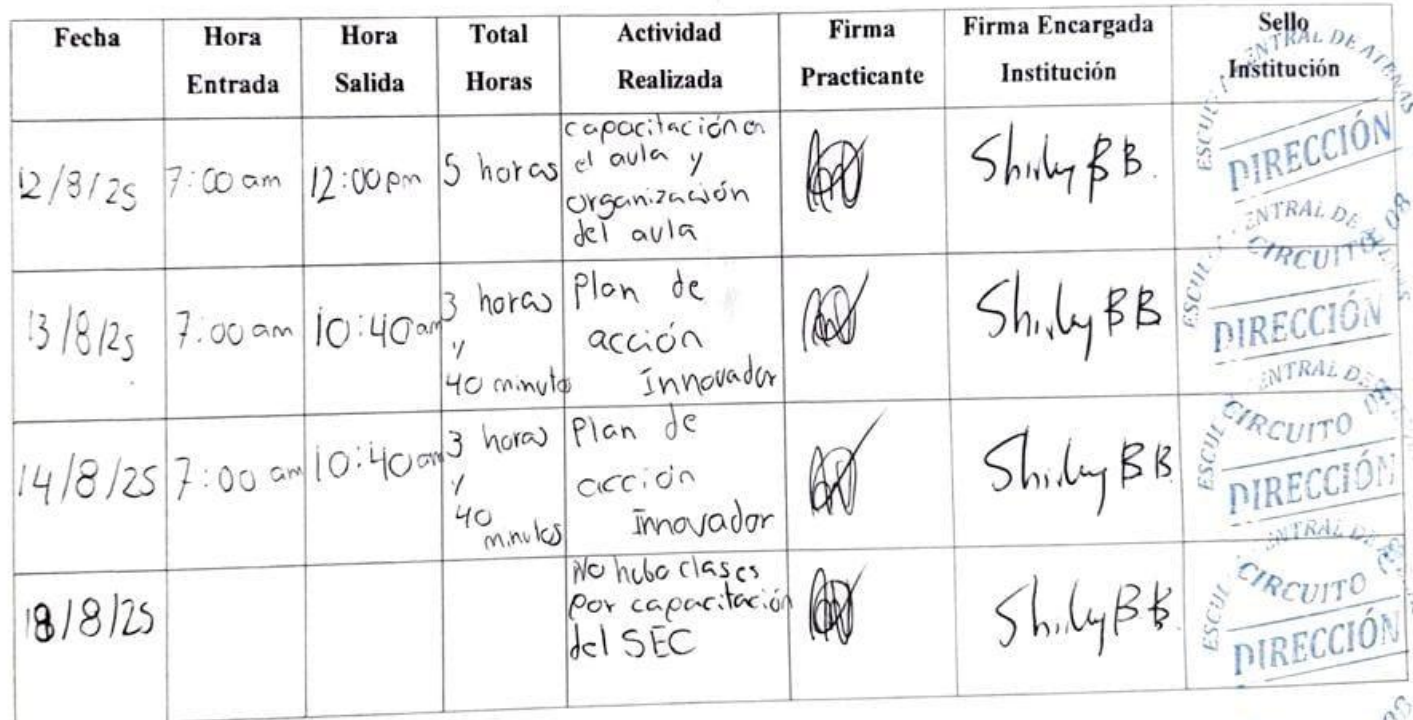 Fecha
Hora
Entrada
Hora
Salida
Total
Horas
Actividad
Realizada
Firma
Practicante
Firma Encargada
Institución
Sello
Institución
12/8/25
7:00 am
12:00 pm
5 horas
capacitación en
el aula y
organización
del aula
Shirley B B.
ESCUELA CENTRAL DE ATENAS
DIRECCIÓN
CIRCUITO 08
13/8/25
7:00 am
10:40 am
3 horas
y
40 minutos
Plan de
acción
Innovador
Shirley B B
ESCUELA CENTRAL DE ATENAS
DIRECCIÓN
CIRCUITO 08
14/8/25
7:00 am
10:40 am
3 horas
y
40
minutos
Plan de
acción
Innovador
Shirley B B
ENTRAL DE
DIRECCIÓN
CIRCUITO
18/8/25
No hubo clases
por capacitación
del SEC
Shirley B B
ENTRAL DE
DIRECCIÓN
08